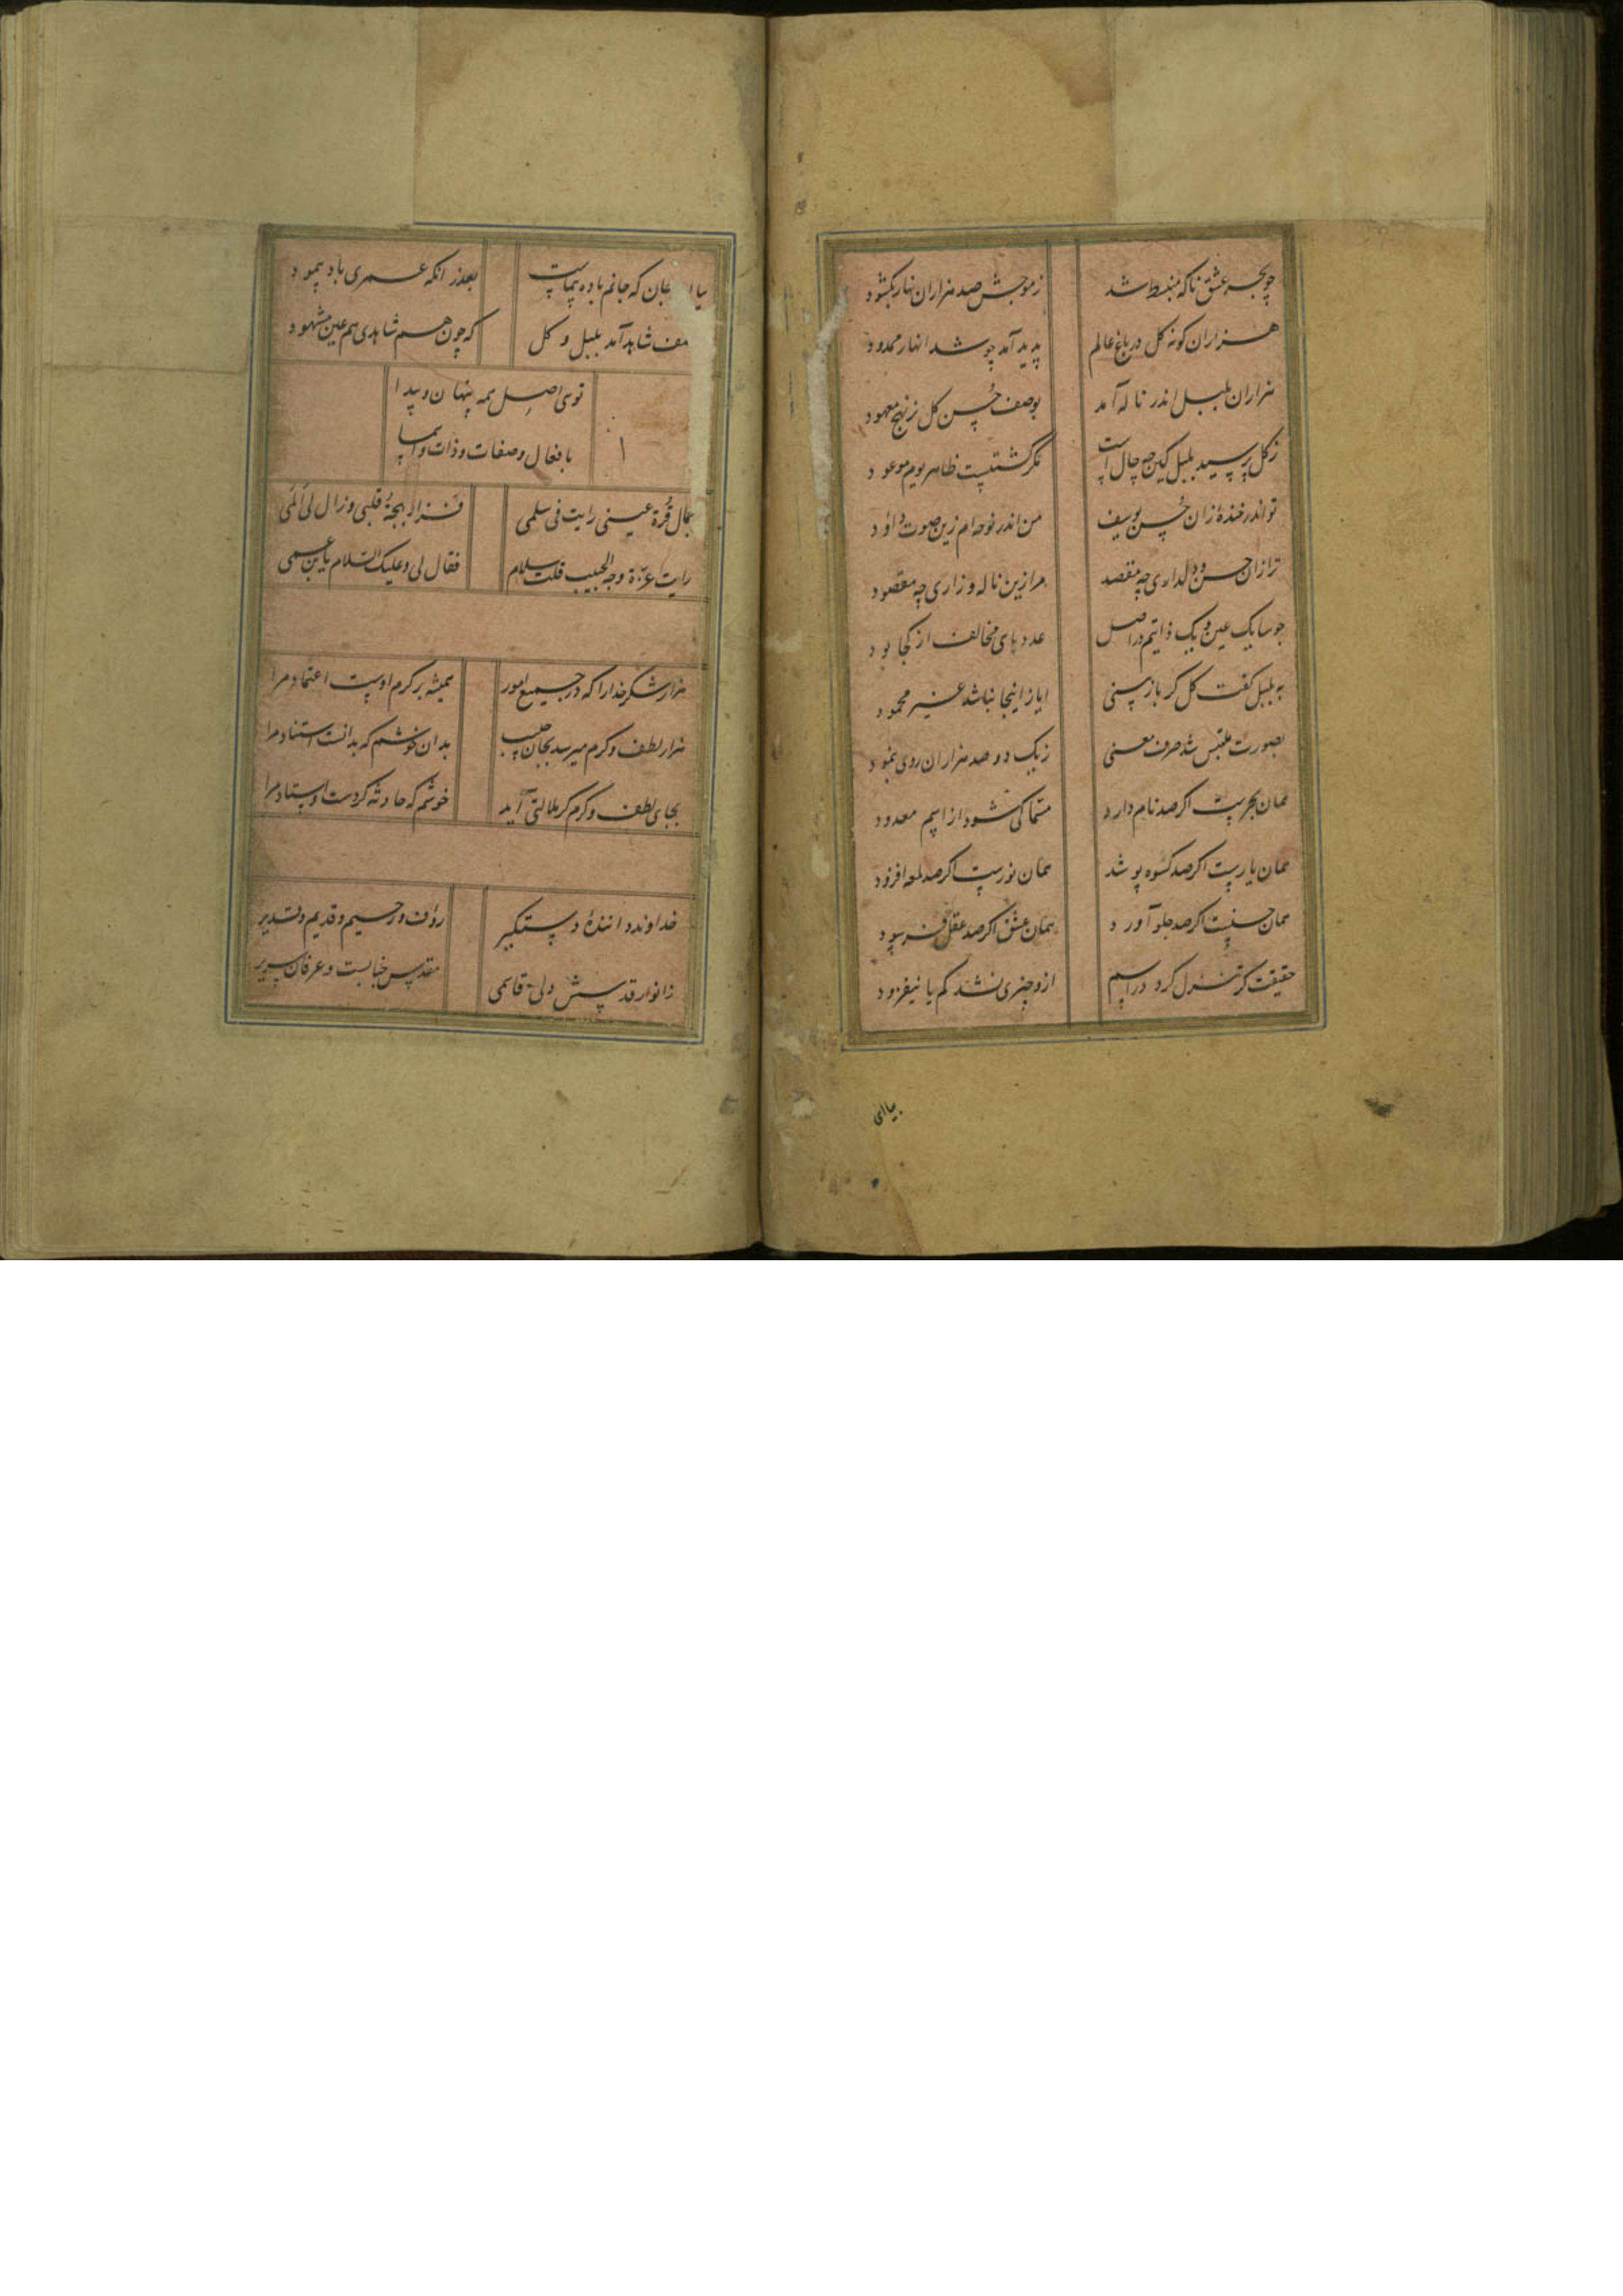 چو بحر عشق ناکه منبسط شد زموجش صد هزاران نهار بکشود
هزاران کونه کل در باغ عالم پدید آمد چو شد انهار ممدود
هزاران بلبل اندر ناله آمد بوصف حسن کل زنهج معهود
زکل پرسید بلبل کین چه حال است مکر کشتست ظاهر یوم موعود
تو اندر خندهٔ زان حسن یوسف من اندر نوحه ام زین صوت داود
ترا زان حسن و دلداری چه مقصد مرا زین ناله و زاری چه مقصود
جو ما یک عین و یک ذاتیم در اصل عددهای مخالف از کجا بود
به بلبل کفت کل کر باز بینی ایاز اینجا نباشد غیر محمود
بصورت ملتبس شد حرف معنی زیک دو صد هزاران روی نمود
همان بحرست اکر صد نام دارد مسمّا کی شود از اسم معدود
همان یارست اکر صد کسوه پوشد همان نورست اکر صد لمعه افزود
همان حسنست اکر صد جلو آورد همان عشق اکر صد عقل فرسود
حقیقت کر تنزل کرد در اسم ازو چیزی نشد کم یا نیفزود
بیا ای
بیا ا جان که جانم باده پیماست بعذر انکه عمری باد پیمود
شاهد آمد بلبل و کل که چون هم شاهدی هم عین مشهود
توی اصل همه پنهان و پیدا
بافعال و صفات و ذات و اسما
جمال قرة عینی رایت فی سلمی فزال بهجة قلبی و زال لی المی
رایت عزة وجه الحبیب قلت سلام فقال لی و علیک السلام یا بن عمی
هزار شکر خدا را که در جمیع امور همیشه بر کرم اوست اعتماد مرا
هزار لطف و کرم میرسد بجان حبیب بدان خوشم که بدانست استناد مرا
بجای لطف و کرم کر ملالتی آید خوشم که حادثه کردست اوستاد مرا
خداوند داننده دستکیر رؤف و رحیم و قدیم و قدیر
زانوار قدسش دلی قاسمی مقدس جنابست و عرفان سریر